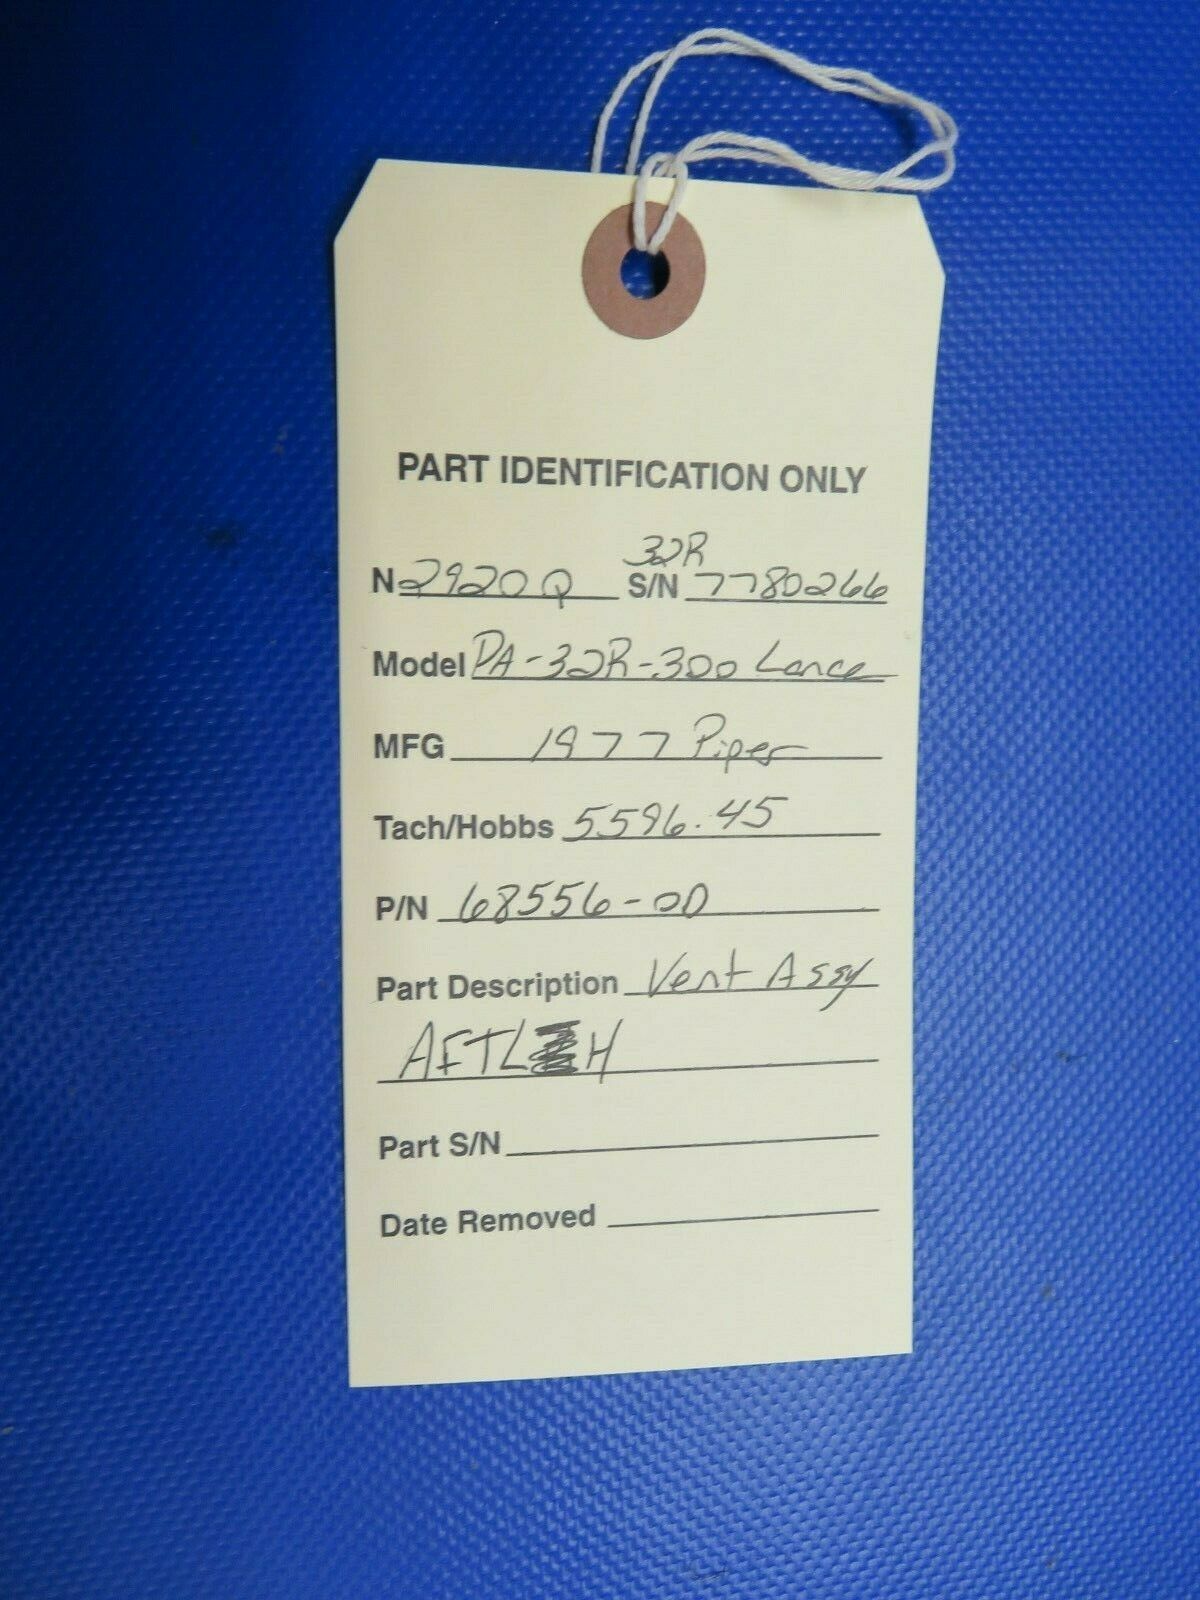 PART IDENTIFICATION ONLY
32R
N 2920Q S/N 7780266
Model PA-32R-300 Lance
MFG 1977 Piper
Tach/Hobbs 5596.45
P/N 68556-00
Part Description Vent Assy
AFT L H
Part S/N
Date Removed